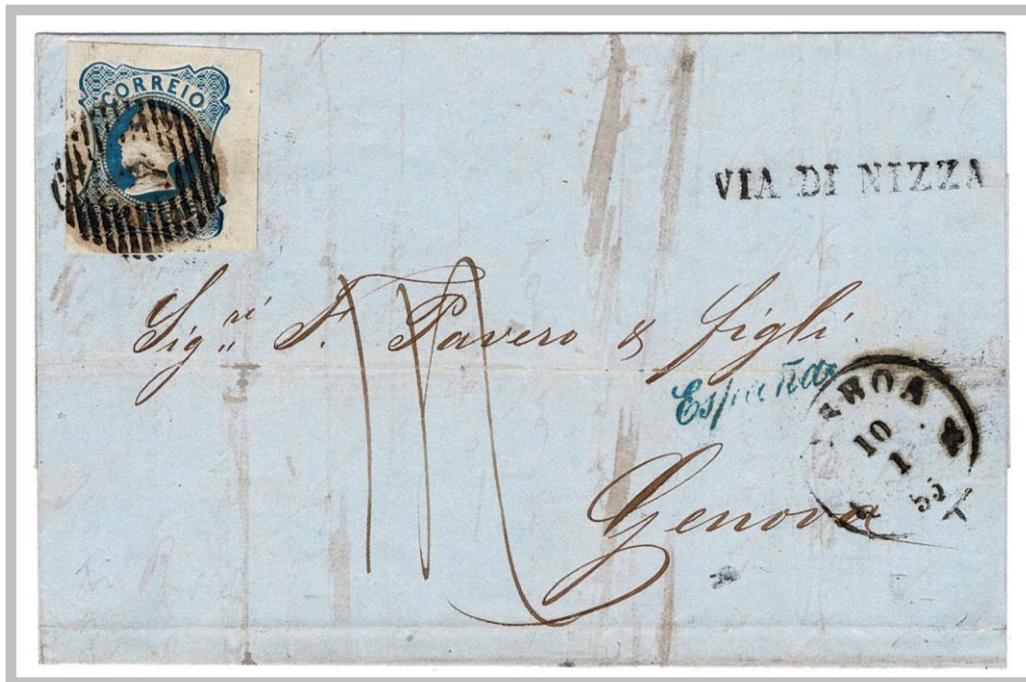 CORREIO
VIA DI NIZZA
Sig.ri F. Pavero & figli
España
Genova
10
1